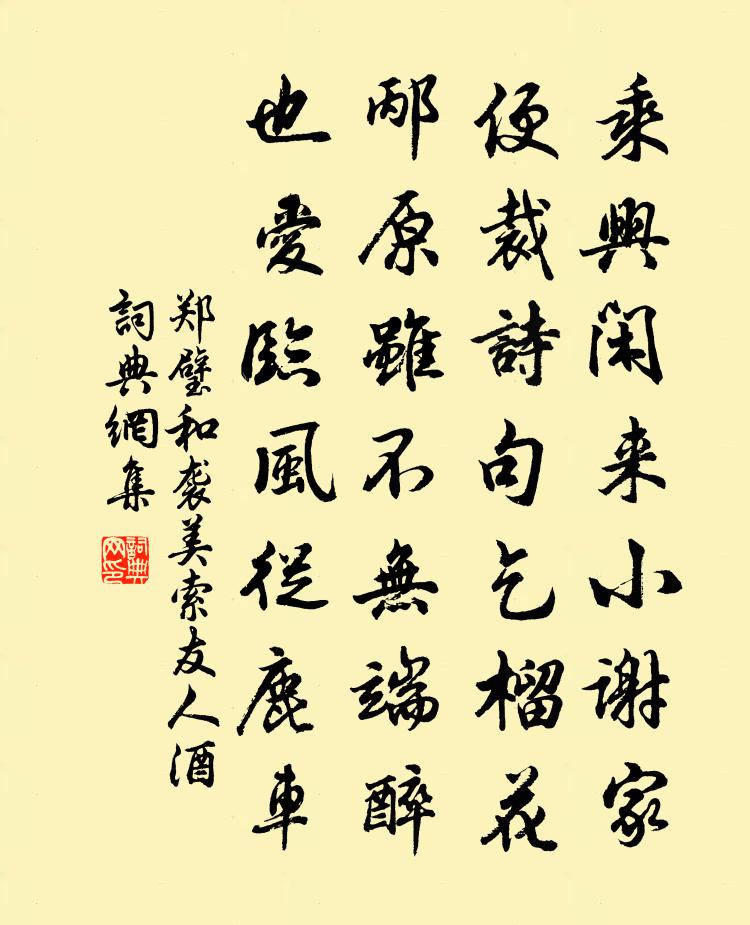 乘興閑来小谢家
便裁詩句乞榴花
邴原雖不無端醉
也愛臨風從鹿車
郑璧和袭美索友人酒
詞典網集
詞典网印